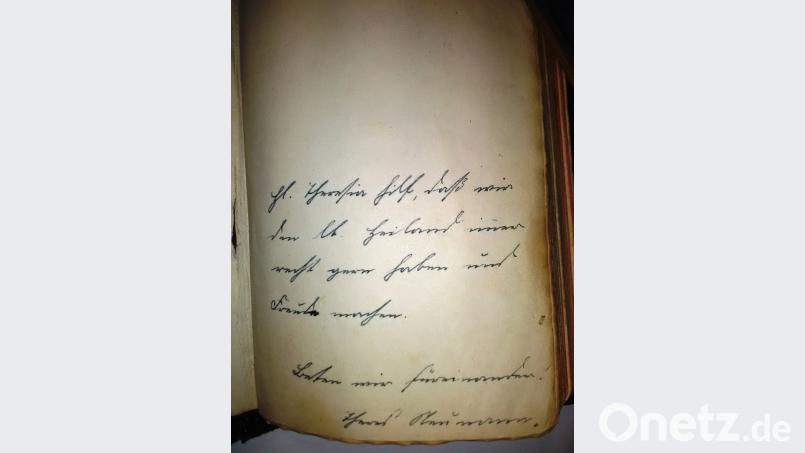 hl. Theresia hilf, daß wir
den lb. Heiland im̄er
recht gern haben und
Freude machen.
Beten wir füreinander!
Theres Neumann.
Onetz.de